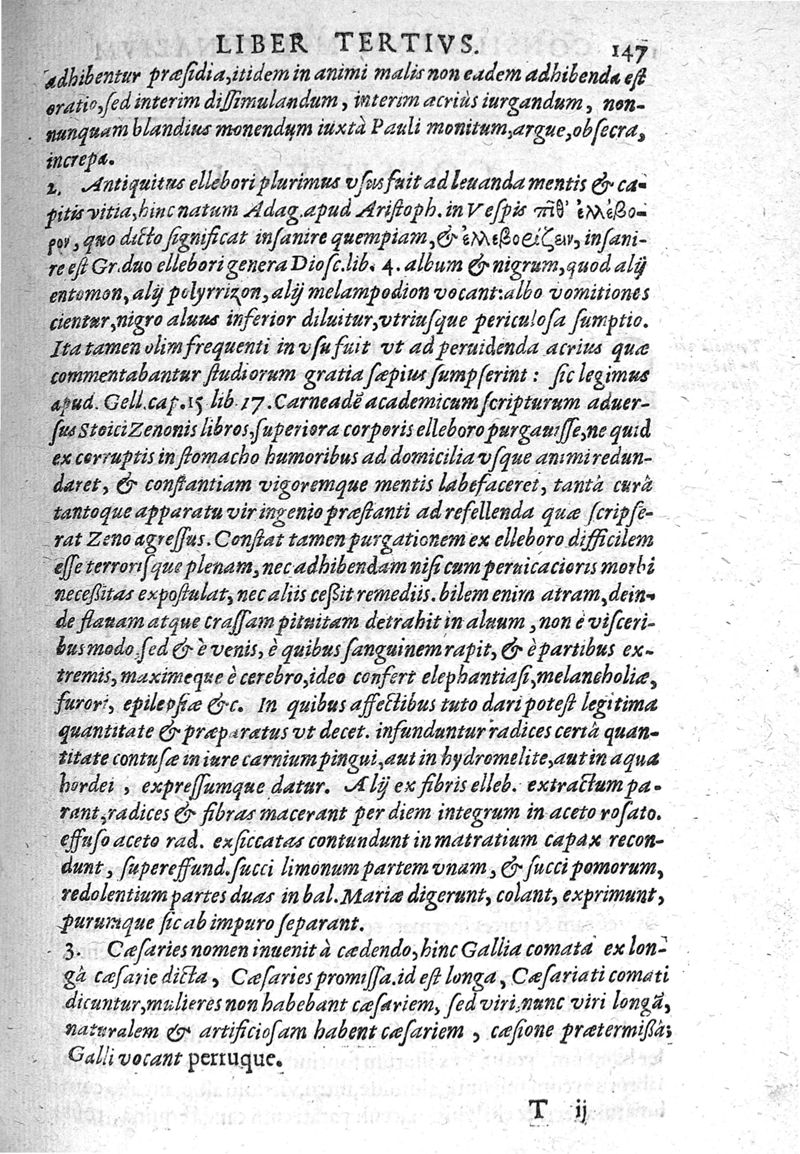 LIBER TERTIVS. 147
adhibentur præsidia, itidem in animi malis non eadem adhibenda est
oratio, sed interim dissimulandum, interim acriùs iurgandum, non-
nunquam blandius monendum iuxtà Pauli monitum, argue, obsecra,
increpa.
2. Antiquitus ellebori plurimus vsus fuit ad leuanda mentis & ca-
pitis vitia, hinc natum Adag. apud Aristoph. in Vespis πῖθ' ἑλλέβο-
ρον, quo dicto significat insanire quempiam, & ἑλλεβορίζειν, insani-
re est Gr. duo ellebori genera Diosc. lib. 4. album & nigrum, quod alij
entomon, alij polyrrizon, alij melampodion vocant: albo vomitiones
cientur, nigro aluus inferior diluitur, vtriusque periculosa sumptio.
Ita tamen olim frequenti in vsu fuit vt ad peruidenda acrius quæ
commentabantur studiorum gratia sæpius sumpserint: sic legimus
apud. Gell. cap. 15 lib. 17. Carneadẽ academicum scripturum aduer-
sus Stoici Zenonis libros, superiora corporis elleboro purgauisse, ne quid
ex corruptis in stomacho humoribus ad domicilia vsque animi redun-
daret, & constantiam vigoremque mentis labefaceret, tantà curâ
tantoque apparatu vir ingenio præstanti ad refellenda quæ scripse-
rat Zeno agressus. Constat tamen purgationem ex elleboro difficilem
esse terrorisque plenam, nec adhibendam nisi cum peruicacioris morbi
necessitas expostulat, nec aliis cessit remediis. bilem enim atram, dein-
de flauam atque crassam pituitam detrahit in aluum, non è visceri-
bus modo sed & è venis, è quibus sanguinem rapit, & è partibus ex-
tremis, maximeque è cerebro, ideo confert elephantiasi, melancholiæ,
furori, epilepsiæ &c. In quibus affectibus tuto dari potest legitima
quantitate & præparatus vt decet. infunduntur radices certà quan-
titate contusæ in iure carnium pingui, aut in hydromelite, aut in aqua
hordei, expressumque datur. Alij ex fibris elleb. extractum pa-
rant, radices & fibras macerant per diem integrum in aceto rosato.
effuso aceto rad. exsiccatas contundunt in matratium capax recon-
dunt, supereffund. succi limonum partem vnam, & succi pomorum,
redolentium partes duas in bal. Mariæ digerunt, colant, exprimunt,
purumque sic ab impuro separant.
3. Cæsaries nomen inuenit à cædendo, hinc Gallia comata ex lon-
gà cæsarie dicta, Cæsaries promissa. id est longa, Cæsariati comati
dicuntur, mulieres non habebant cæsariem, sed viri, nunc viri longã,
naturalem & artificiosam habent cæsariem, cæsione prætermissà;
Galli vocant perruque.
T ij